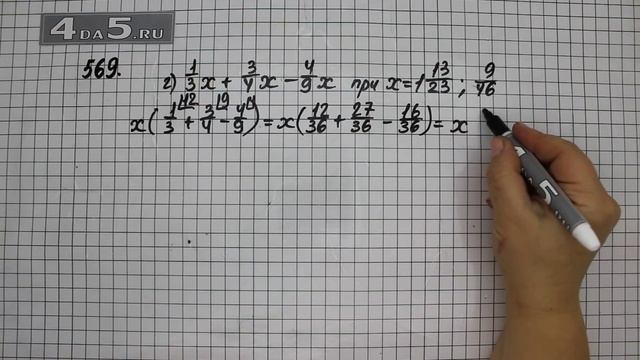 4DA5.RU
569.
г) 1/3 x + 3/4 x − 4/9 x при x = 1 13/23 ; 9/46
x( 1/3 |12 + 3/4 |9 − 4/9 |4 ) = x( 12/36 + 27/36 − 16/36 ) = x
5